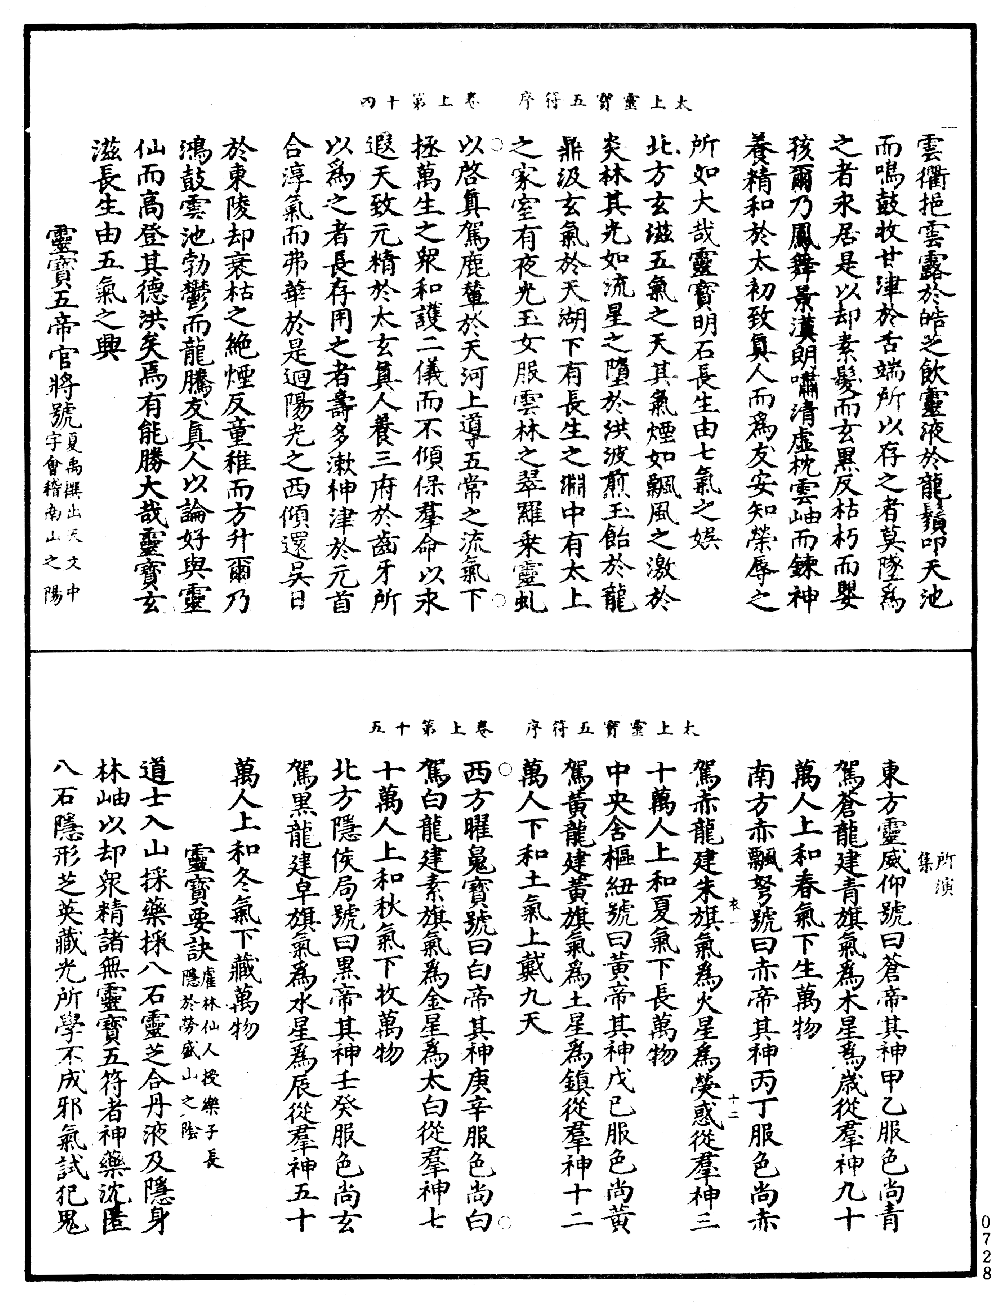 太上靈寶五符序　卷上第十四
雲衢挹雲露於皓芝飲靈液於龍鬚叩天池
而鳴鼓收甘津於舌端所以存之者莫墜爲
之者永居是以却素髮而玄黑反枯朽而嬰
孩爾乃鳳舞景漢朗嘯清虛枕雲岫而鍊神
養精和於太初致員人而爲友安知榮辱之
所如大哉靈寶明石長生由七氣之娱
北方玄滋五氣之天其氣煙如飄風之激於
炎林其光如流星之墮於洪波煎玉飴於龍
鼎汲玄氣於天湖下有長生之淵中有太上
之家室有夜光玉女服雲林之翠羅乗靈虬
以啓真駕鹿輦於天河上導五常之流氣下
拯萬生之衆和護二儀而不傾保羣命以永
遐天致元精於太玄真人養三府於齒牙所
以爲之者長存用之者壽多漱神津於元首
合淳氣而弗華於是迴陽光之西傾還吳日
於東陵却衰枯之絶煙反童稚而方升爾乃
鴻鼓雲池勃鬱而龍騰友真人以論好與靈
仙而高登其德洪矣焉有能勝大哉靈寶玄
滋長生由五氣之興
靈寶五帝官將號夏禹撰出天文中
字會稽南山之陽
太上靈寶五符序　卷上第十五
所演
集
東方靈威仰號曰蒼帝其神甲乙服色尚青
駕蒼龍建青旗氣爲木星爲歲從羣神九十
萬人上和春氣下生萬物
南方赤飄弩號曰赤帝其神丙丁服色尚赤
衣一　十二
駕赤龍建朱旗氣爲火星爲熒惑從羣神三
十萬人上和夏氣下長萬物
中央含樞紐號曰黃帝其神戊己服色尚黃
駕黃龍建黃旗氣爲土星爲鎮從羣神十二
萬人下和土氣上戴九天
西方曜魄寶號曰白帝其神庚辛服色尚白
駕白龍建素旗氣爲金星爲太白從羣神七
十萬人上和秋氣下收萬物
北方隱侯局號曰黑帝其神壬癸服色尚玄
駕黑龍建皁旗氣爲水星爲辰從羣神五十
萬人上和冬氣下藏萬物
靈寶要訣霍林仙人授樂子長
隱於勞盛山之陰
道士入山採藥採八石靈芝合丹液及隱身
林岫以却衆精諸無靈寶五符者神藥沈匿
八石隱形芝英藏光所學不成邪氣試犯鬼
0728